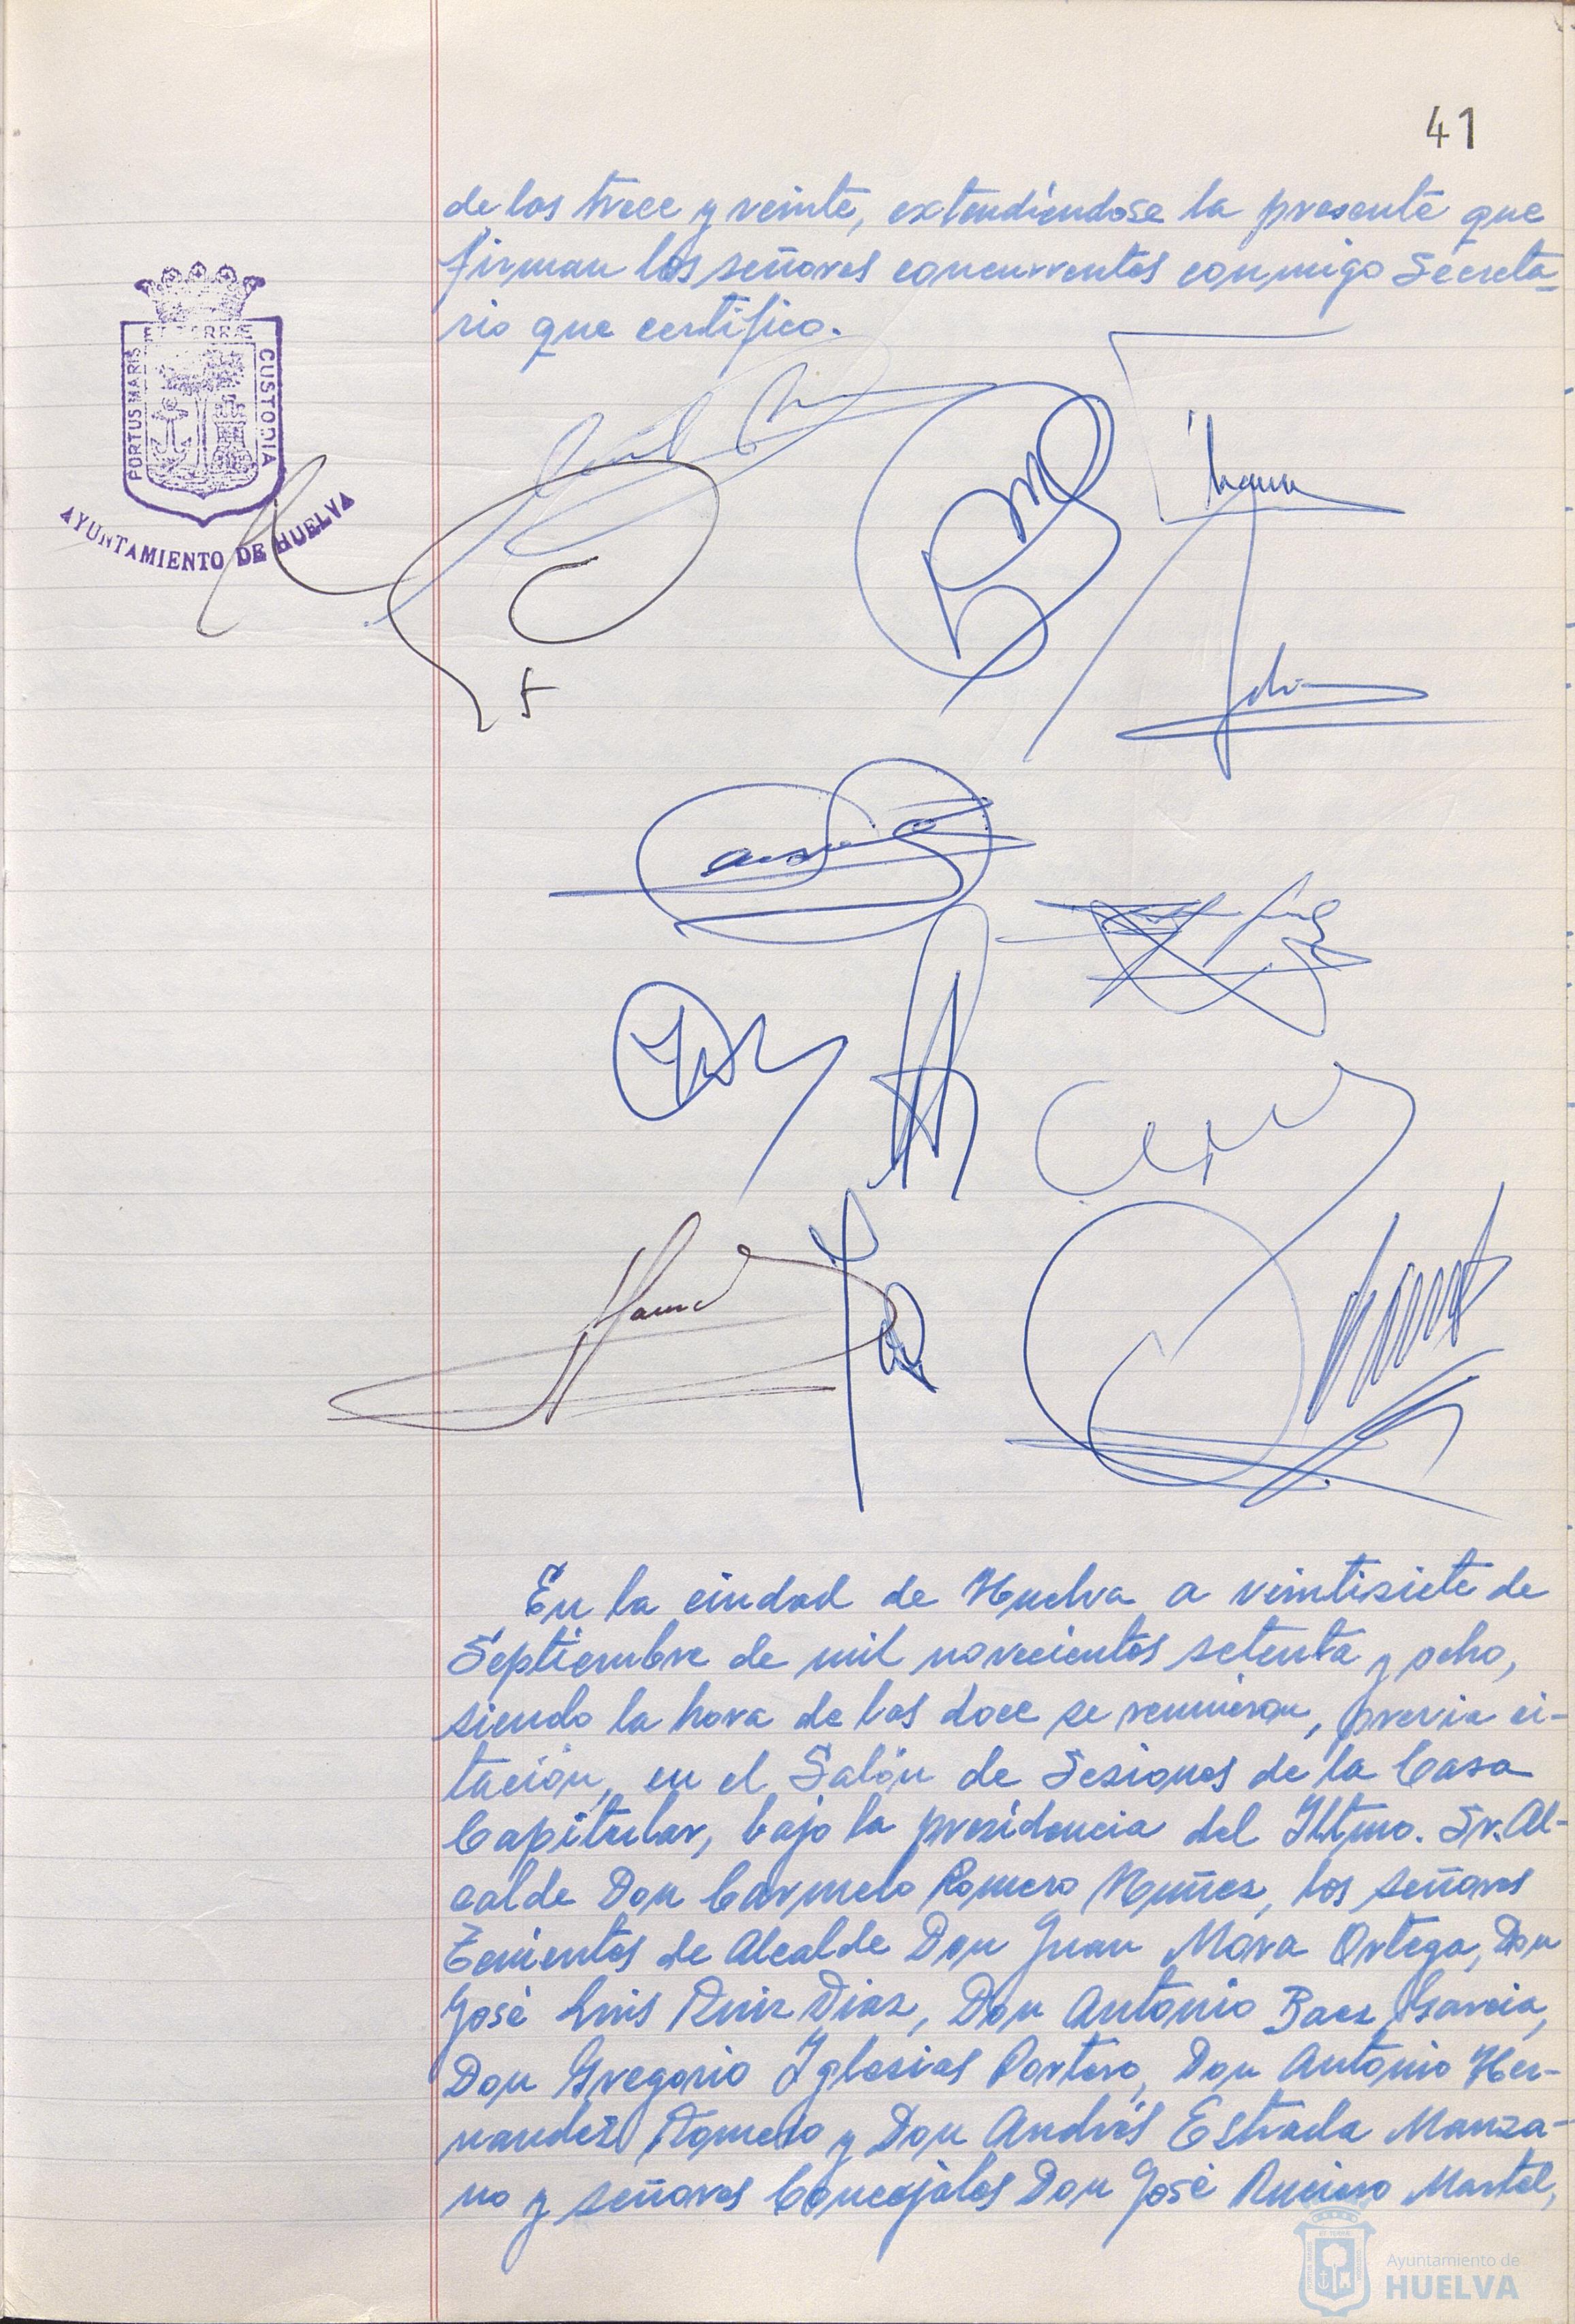 41
de las trece y veinte, extendiéndose la presente que
firman los señores concurrentes conmigo Secreta-
rio que certifico.
PORTUS MARIS ET TERRÆ CUSTODIA
AYUNTAMIENTO DE HUELVA
En la ciudad de Huelva a veintisiete de
Septiembre de mil novecientos setenta y ocho,
siendo la hora de las doce se reunieron, previa ci-
tación, en el Salón de Sesiones de la Casa
Capitular, bajo la presidencia del Iltmo. Sr. Al-
calde Don Carmelo Romero Nuñez, los señores
Tenientes de Alcalde Don Juan Mora Ortega, Don
José Luis Ruiz Diaz, Don Antonio Baez Garcia,
Don Gregorio Iglesias Portero, Don Antonio Her-
nandez Romero y Don Andrés Estrada Manza-
no y señores Concejales Don José Rucino Martel,
Ayuntamiento de
HUELVA